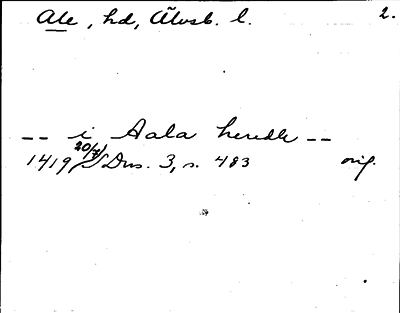 Ale, hd, Älvsb. l. 2.
-- i Aala heredh --
1419 20/7 Dns. 3, s. 483 orig.